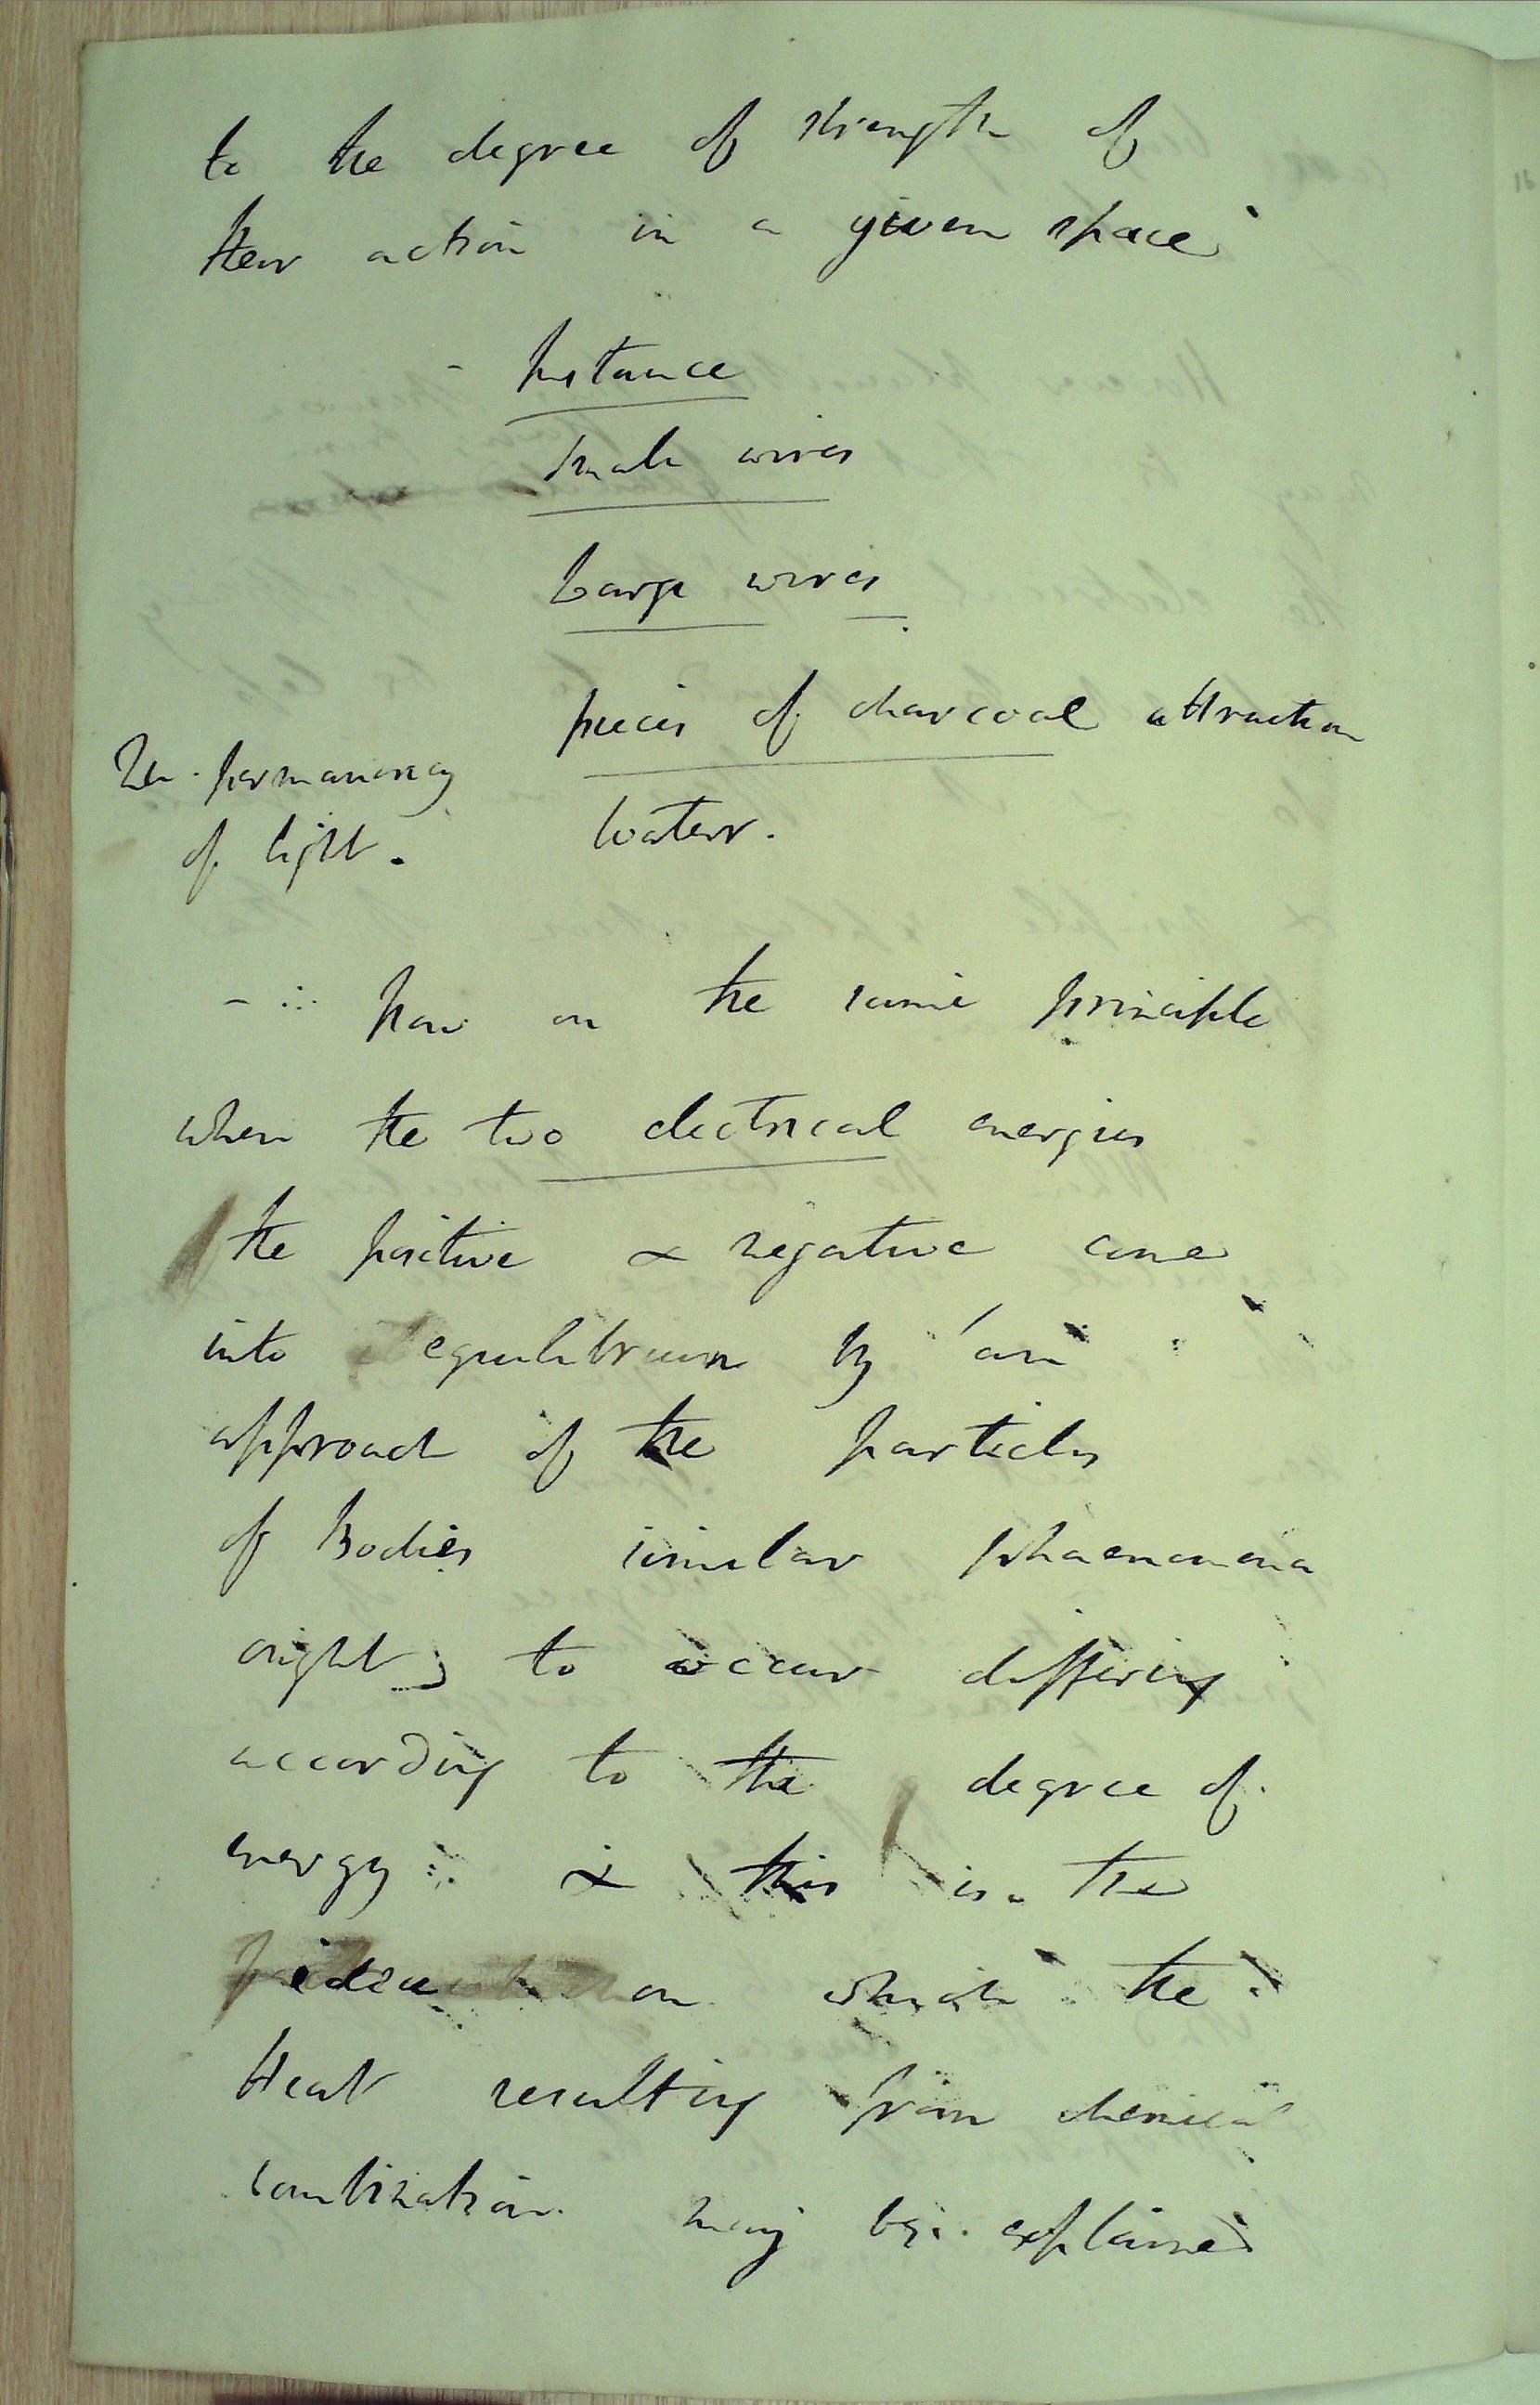 to the degree of strength of
their action in a given space
- Instance
Small wires
Large wires
pieces of charcoal attraction
permanency
of light.
Water.
- ∴ Now on the same principle
when the two electrical energies
the positive & negative come
into equilibrium by an
approach of the particles
of Bodies similar phaenomena
ought to occur differing
according to the degree of
energy: & this is the
idea on which the
Heat resulting from chemical
combination may be explained